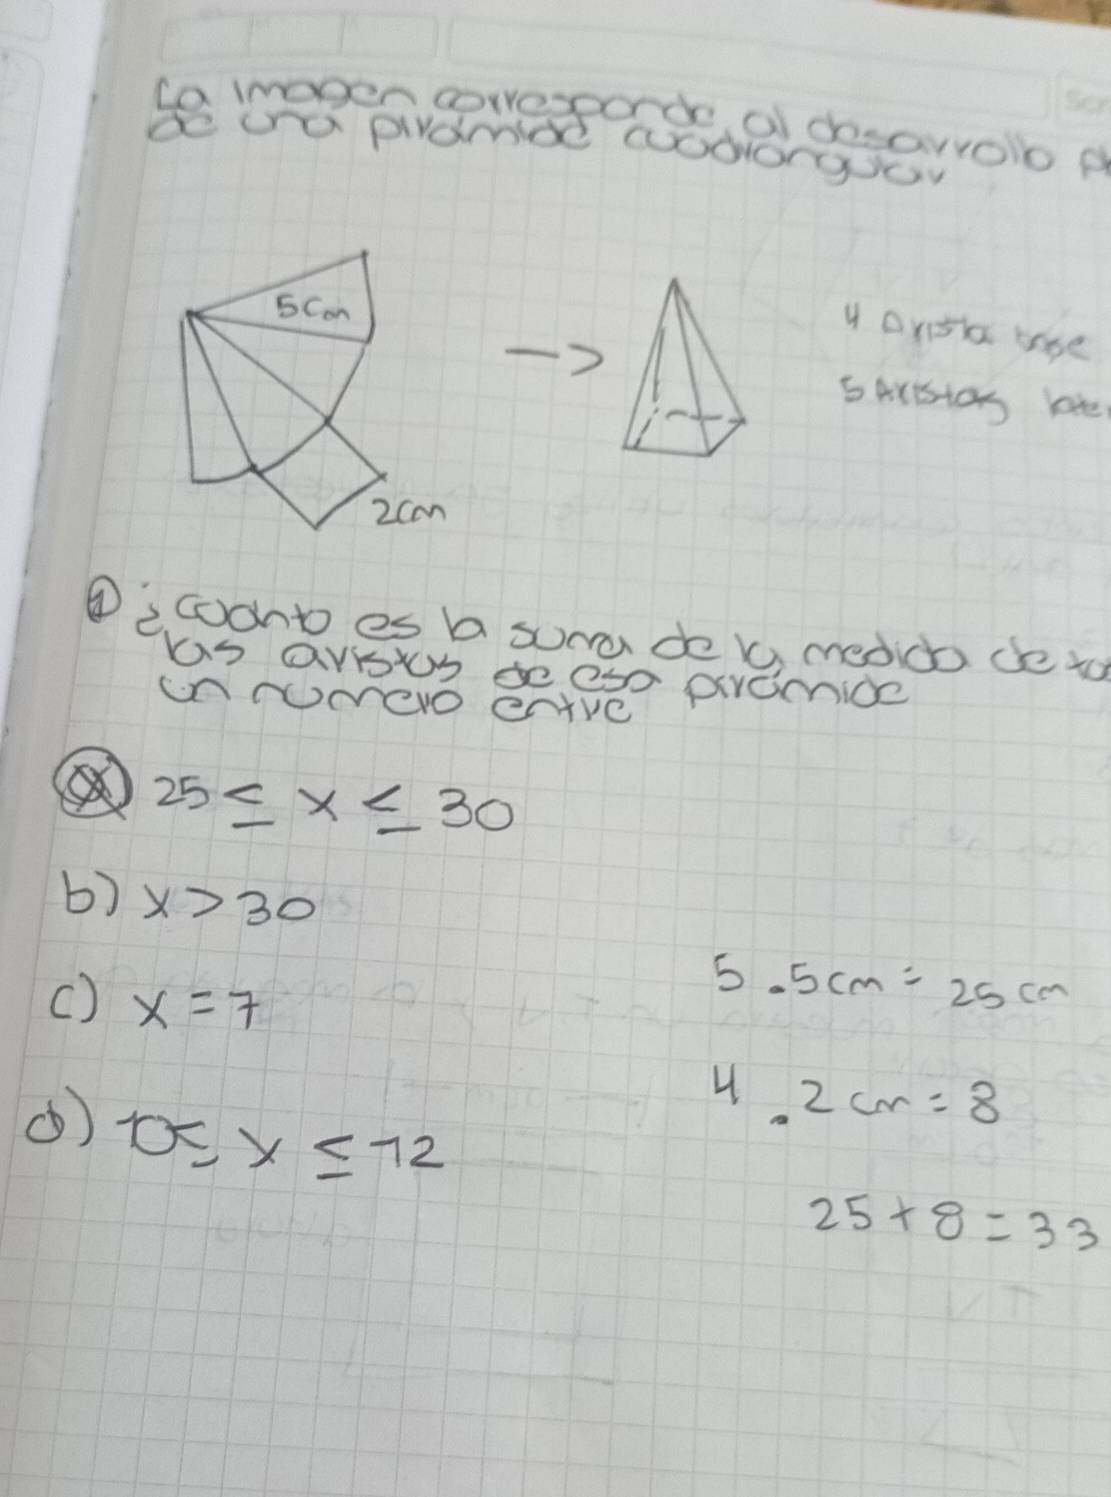 La imagen corresponde al desarrollo
de una pirámide cuadrangular
5cm
2cm
4 Arista base
5 Aristas
① ¿cuanto es la suma de la medida de
las aristas de esa pirámide
un numero entre
a) 25 ≤ x ≤ 30
b) x > 30
c) x = 7
d) 10 ≤ x ≤ 12
5 . 5cm = 25 cm
4 . 2cm = 8
25 + 8 = 33